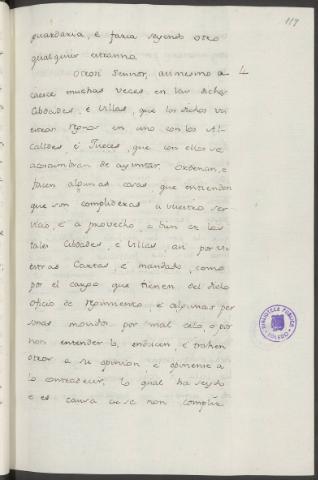 119
guardaria, é faria seyendo otro
qualquier estranno.
Otrosi Sennor, asimesmo a-
caesce muchas veces en las dichas
Cibdades, é Villas, que los dichos vu
estros Regidores en uno con los Al-
calldes, é Jueces, que con ellos se
acostumbran de ayuntar. Ordenan, é
facen algunas cosas, que entienden
que son complideras a vuestro ser
vicio, é a provecho, é bien de las
tales Cibdades, é Villas, asi por vu
estras Cartas, é mandado, como
por el cargo que tienen del dicho
oficio de regimiento, é algunas per
sonas movidas por mal celo, ó por
non entender lo, enducen, é trahen
otros a su opinion, é oponense a
lo contradecir, lo qual ha seydo
é es causa de se non complir
BIBLIOTECA PUBLICA
TOLEDO